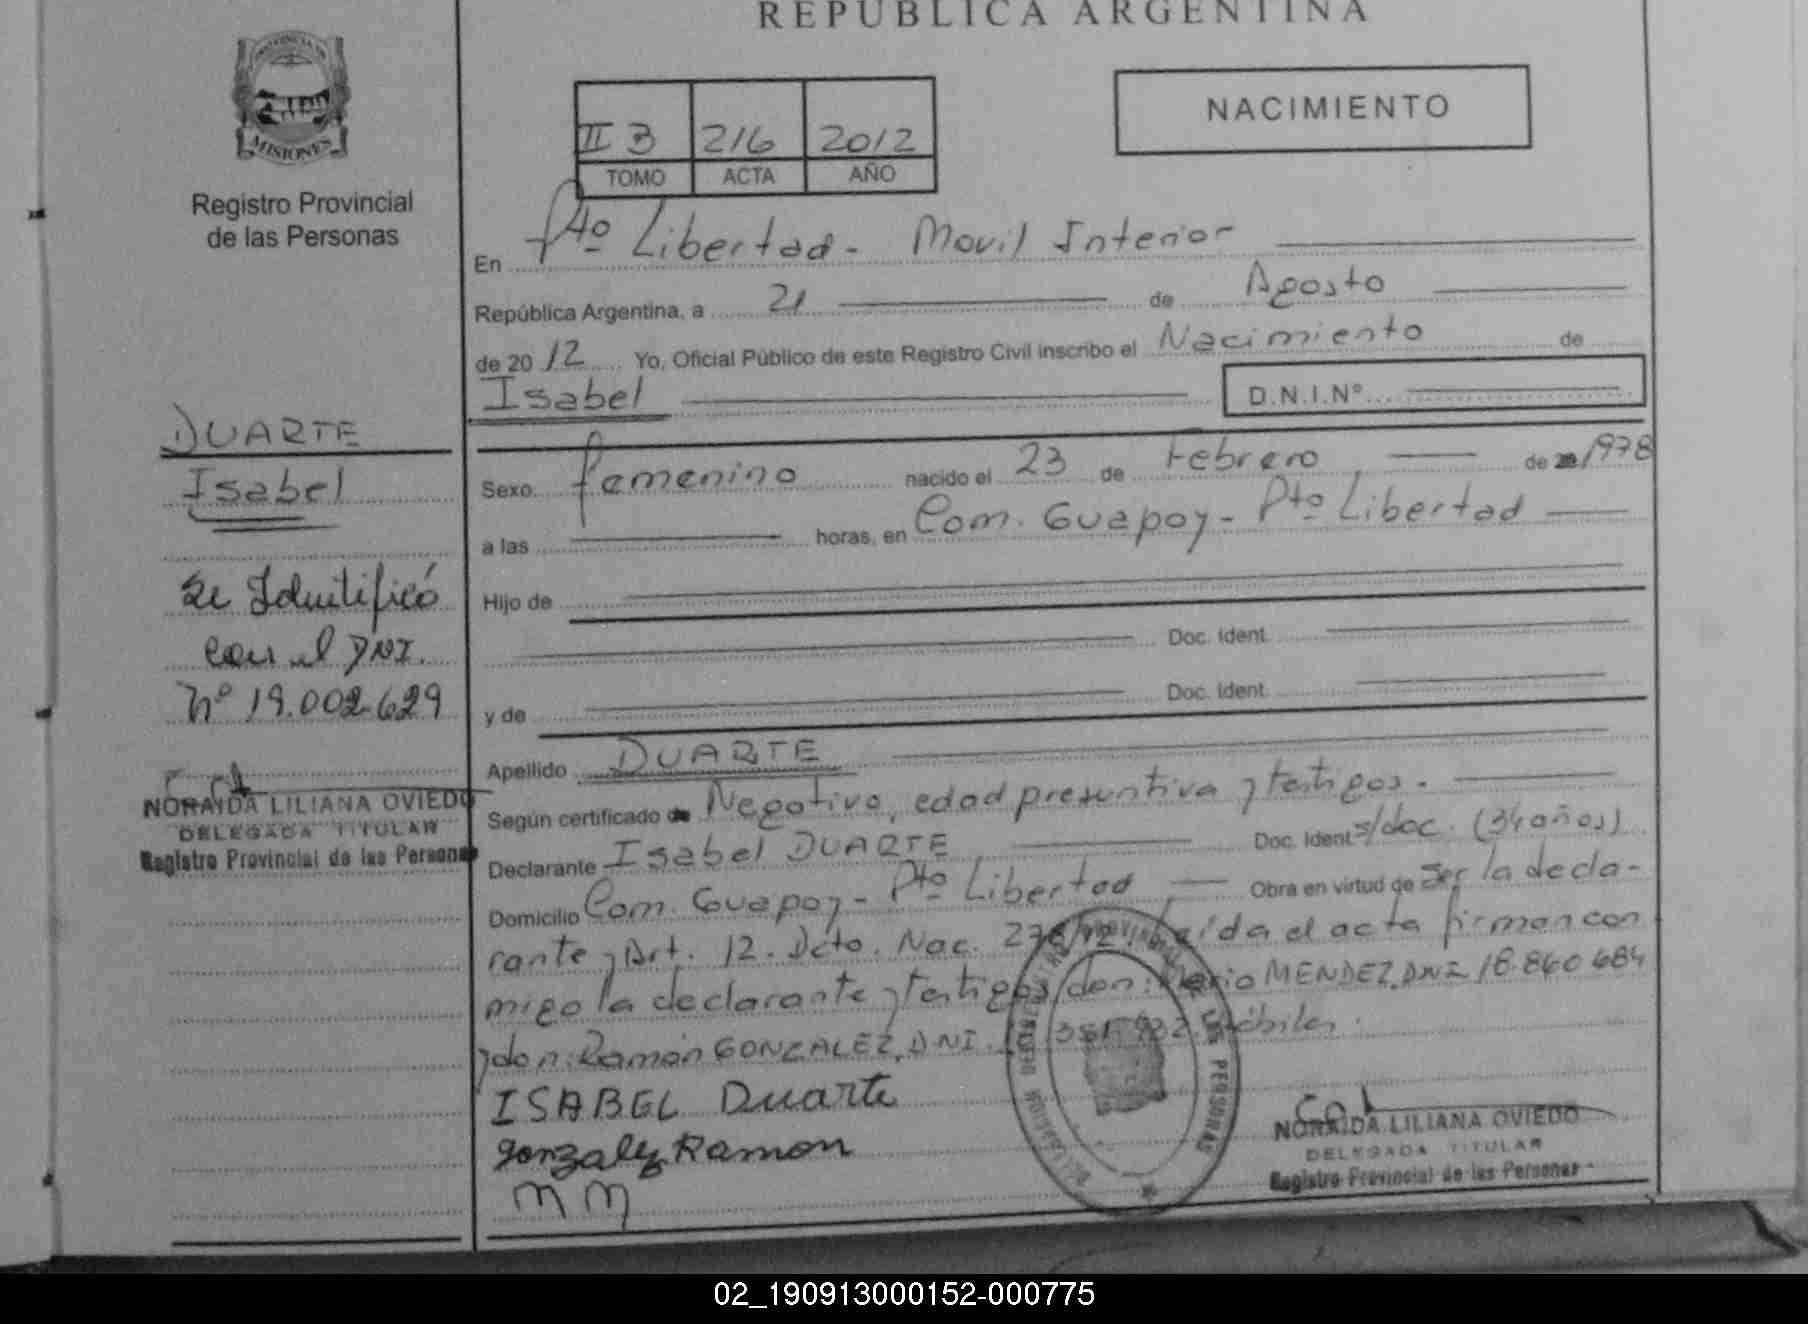 REPÚBLICA ARGENTINA
PROVINCIA DE
MISIONES
Registro Provincial
de las Personas
NACIMIENTO
II 3 216 2012
TOMO ACTA AÑO
En Pto Libertad - Movil Interior
República Argentina, a 21 de Agosto
de 2012 Yo, Oficial Público de este Registro Civil inscribo el Nacimiento de
Isabel D.N.I.Nº
Sexo femenino nacido el 23 de Febrero, de 1978
a las horas, en Com. Guapoy - Pto Libertad
Hijo de
Doc. Ident.
y de Doc. Ident.
Apellido DUARTE
Según certificado de Negativo, edad presuntiva y testigos.
Declarante Isabel DUARTE Doc. Ident. s/doc. (34 años)
Domicilio Com. Guapoy - Pto Libertad Obra en virtud de ser la decla-
rante y Art. 12. Dcto. Nac. 278/12. Leída el acta firman con
migo la declarante y testigos don: Mario MENDEZ, DNI 18.860 684
y don: Ramón GONZALEZ, DNI. hábiles.
ISABEL Duarte
Gonzalez Ramon
M M
NORAIDA LILIANA OVIEDO
DELEGADA TITULAR
Registro Provincial de las Personas
DUARTE
Isabel
Se Identificó
con el DNI.
Nº 19.002.629
NORAIDA LILIANA OVIEDO
DELEGADA TITULAR
Registro Provincial de las Personas
02_190913000152-000775